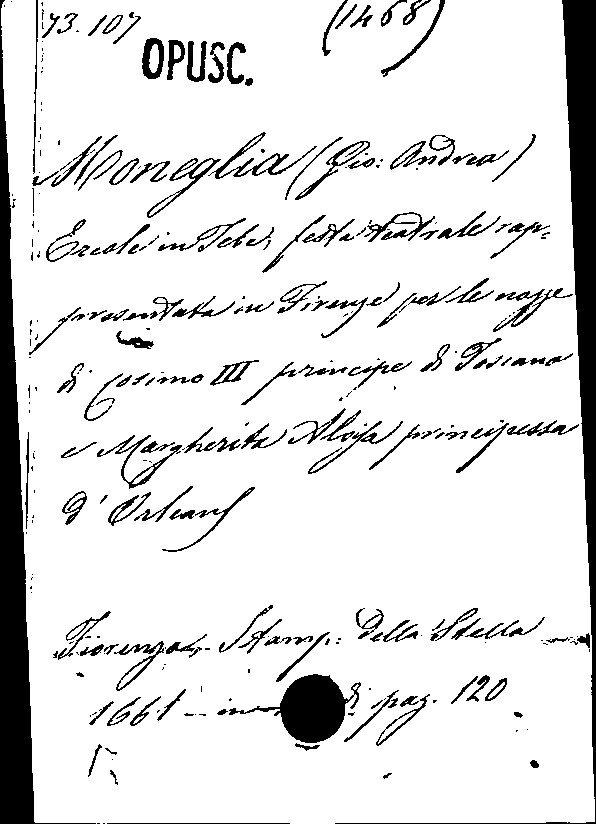 73.107 (1468)
OPUSC.
Moneglia (Gio: Andrea)
Ercole in Tebe, festa teatrale rap-
presentata in Firenze per le nozze
di Cosimo III principe di Toscana
e Margherita Aloisa principessa
d'Orleans
Fiorenza - Stamp: della Stella
1661 - in di pag. 120